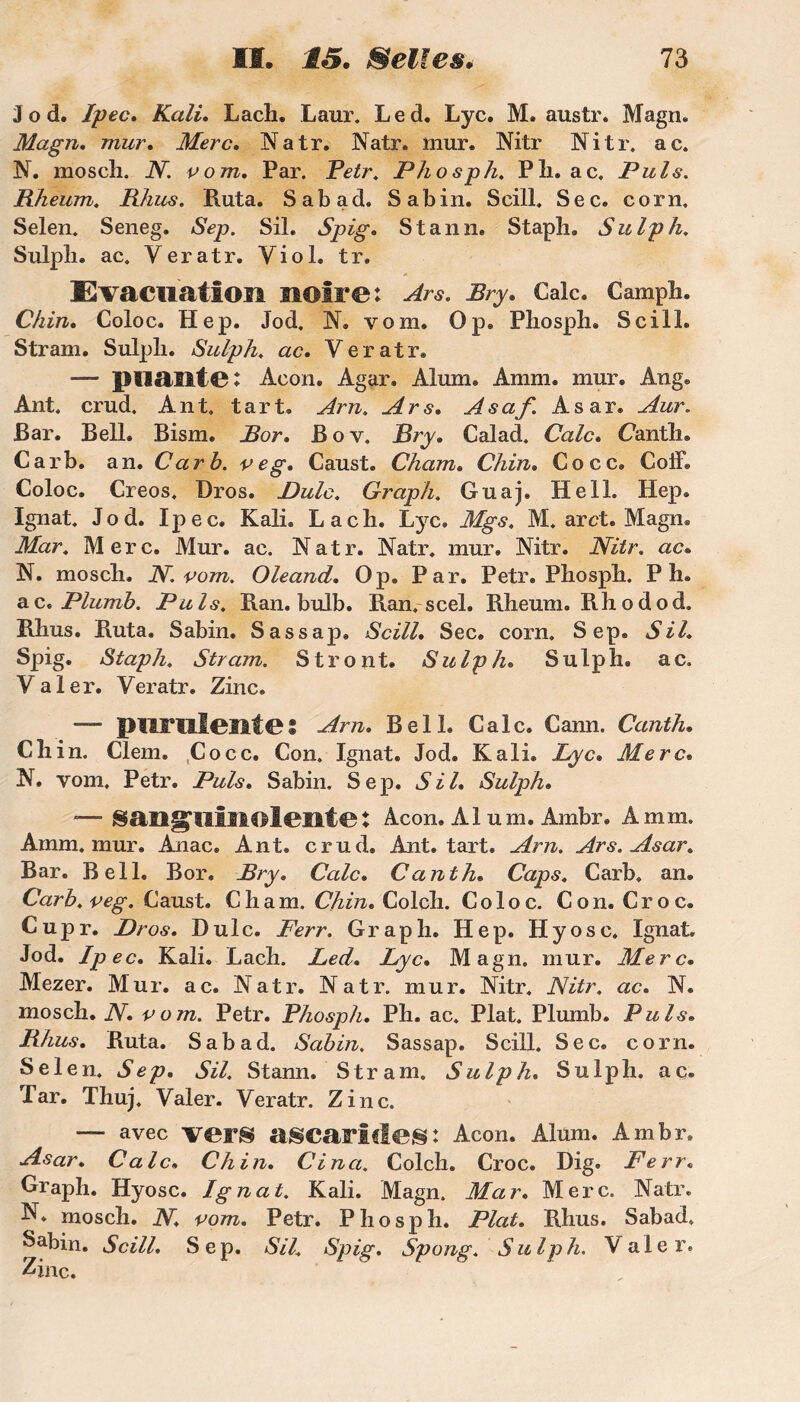 II. 15. Selles. 73
Jod. Ipec. Kali. Lach. Laur. Led. Lyc. M. austr. Magn.
Magn. mur. Merc. Natr. Natr. mur. Nitr Nitr. ac.
N. mosch. N. vom. Par. Petr. Phosph. Ph. ac. Puls.
Rheum. Rhus. Ruta. Sabad. Sabin. Scill. Sec. corn.
Selen. Seneg. Sep. Sil. Spig. Stann. Staph. Sulph.
Sulph. ac. Veratr. Viol. tr.
Evacuation noire: Ars. Bry. Calc. Camph.
Chin. Coloc. Hep. Jod. N. vom. Op. Phosph. Scill.
Stram. Sulph. Sulph. ac. Veratr.
— puante: Acon. Agar. Alum. Amm. mur. Ang.
Ant. crud. Ant. tart. Arn. Ars. Asaf. Asar. Aur.
Bar. Bell. Bism. Bor. Bov. Bry. Calad. Calc. Canth.
Carb. an. Carb. veg. Caust. Cham. Chin. Cocc. Coff.
Coloc. Creos. Dros. Dulc. Graph. Guaj. Hell. Hep.
Ignat. Jod. Ipec. Kali. Lach. Lyc. Mgs. M. arct. Magn.
Mar. Merc. Mur. ac. Natr. Natr. mur. Nitr. Nitr. ac.
N. mosch. N. vom. Oleand. Op. Par. Petr. Phosph. Ph.
ac. Plumb. Puls. Ran. bulb. Ran. scel. Rheum. Rhodod.
Rhus. Ruta. Sabin. Sassap. Scill. Sec. corn. Sep. Sil.
Spig. Staph. Stram. Stront. Sulph. Sulph. ac.
Valer. Veratr. Zinc.
— purulente: Arn. Bell. Calc. Cann. Canth.
Chin. Clem. Cocc. Con. Ignat. Jod. Kali. Lyc. Merc.
N. vom. Petr. Puls. Sabin. Sep. Sil. Sulph.
— sanguinolente: Acon. Alum. Ambr. Amm.
Amm. mur. Anac. Ant. crud. Ant. tart. Arn. Ars. Asar.
Bar. Bell. Bor. Bry. Calc. Canth. Caps. Carb. an.
Carb. veg. Caust. Cham. Chin. Colch. Coloc. Con. Croc.
Cupr. Dros. Dulc. Ferr. Graph. Hep. Hyosc. Ignat.
Jod. Ipec. Kali. Lach. Led. Lyc. Magn. mur. Merc.
Mezer. Mur. ac. Natr. Natr. mur. Nitr. Nitr. ac. N.
mosch. N. vom. Petr. Phosph. Ph. ac. Plat. Plumb. Puls.
Rhus. Ruta. Sabad. Sabin. Sassap. Scill. Sec. corn.
Selen. Sep. Sil. Stann. Stram. Sulph. Sulph. ac.
Tar. Thuj. Valer. Veratr. Zinc.
— avec vers ascarides: Acon. Alum. Ambr.
Asar. Calc. Chin. Cina. Colch. Croc. Dig. Ferr.
Graph. Hyosc. Ignat. Kali. Magn. Mar. Merc. Natr.
N. mosch. N. vom. Petr. Phosph. Plat. Rhus. Sabad.
Sabin. Scill. Sep. Sil. Spig. Spong. Sulph. Valer.
Zinc.